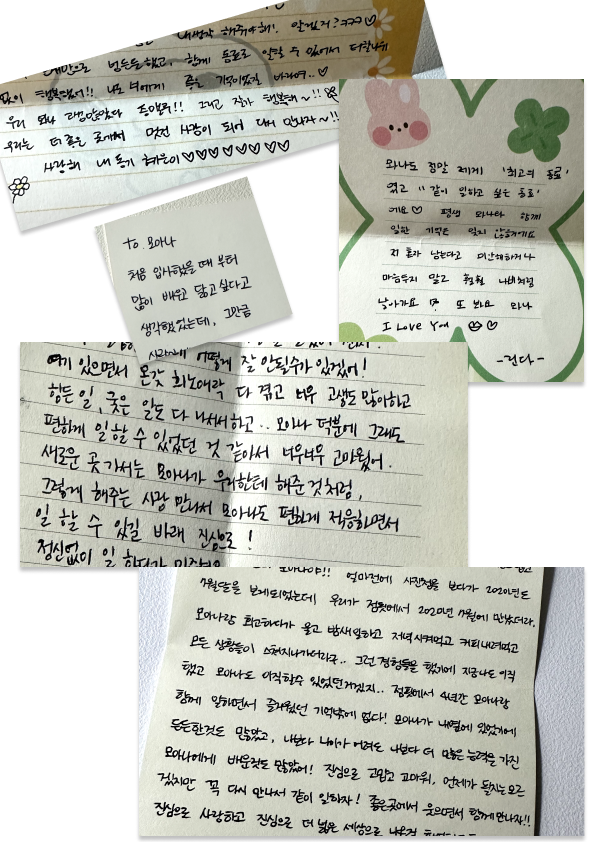 내생각 해줘야해! 알겠지?ㅋㅋㅋ♡
번돈들했고, 함께 동료로 일할 수 있어서
없이 행복했어!! 나도 너에게 좋은 기억이었길 바라며..♡
우리 모나 고생많았다 증말루!! 그리고 진짜 행복해~!!
우리는 더 좋은 곳에서 멋진 사람이 되어 다시 만나자~!!
사랑해 내 동기 ♡♡♡♡♡♡♡
모나도 정말 제게 '최고의 동료'
였고 "같이 일하고 싶은 동료'
에요♡ 평생 모나와 함께
일한 기억은 잊지 않을거에요
저 혼자 남는다고 미안해하거나
마음두지 말고 훨훨 나비처럼
날아가요 또 봐요 모나
I Love You ♡
-런다-
To. 모아나
처음 입사했을 때 부터
많이 배우고 닮고싶다고
생각했었는데, 그만큼
어떻게 잘 안될수가 있겠어!
여기 있으면서 온갖 희노애락 다 겪고 너무 고생도 많이하고
힘든 일, 궂은 일도 다 나서서하고.. 모아나 덕분에 그래도
편하게 일할 수 있었던 것 같아서 너무너무 고마웠어.
새로운 곳 가서는 모아나가 우리한테 해준 것처럼,
그렇게 해주는 사람 만나서 모아나도 편하게 적응하면서
일 할 수 있길 바래 진심으로!
정신없이 일 하다가
모아나야!! 얼마전에 사진첩을 보다가 2020년도
7월달을 보게되었는데 우리가 점핏에서 2020년 7월에 만났더라.
모아나랑 회고하다가 울고 밤새일하고 저녁시켜먹고 커피내려먹고
모든 상황들이 스쳐지나가더라구.. 그런 경험들을 했기에 지금 나도 이직
했고 모아나도 이직할수 있었던거겠지.. 점핏에서 4년간 모아나랑
함께 일하면서 즐거웠던 기억밖에 없다! 모아나가 내옆에 있었기에
든든한것도 많았고, 나보다 나이가 어려도 나보다 더 많은 능력을 가진
모아나에게 배운것도 많았어! 진심으로 고맙고 고마워, 언제가 될지는모르
겠지만 꼭 다시 만나서 같이 일하자! 좋은곳에서 웃으면서 함께만나자!!
진심으로 사랑하고 진심으로 더 넓은 세상으로